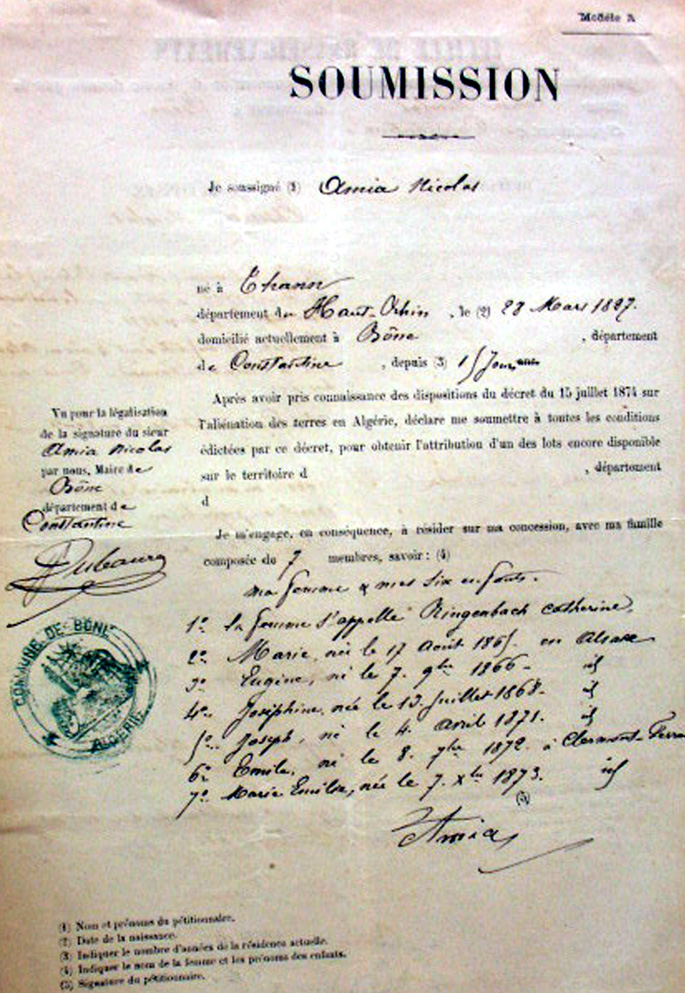 Modèle A
SOUMISSION
Je soussigné (1) Amia Nicolas
né à Thann
département du Haut-Rhin, le (2) 28 Mars 1827.
domicilié actuellement à Bône, département
de Constantine, depuis (3) 15 Jours
Après avoir pris connaissance des dispositions du décret du 15 juillet 1874 sur
l'aliénation des terres en Algérie, déclare me soumettre à toutes les conditions
édictées par ce décret, pour obtenir l'attribution d'un des lots encore disponible
sur le territoire d , département
d
Vu pour la légalisation
de la signature du sieur
Amia Nicolas
par nous, Maire de
Bône
département de
Constantine
COMMUNE DE BÔNE
ALGÉRIE
Je m'engage, en conséquence, à résider sur ma concession, avec ma famille
composée de 7 membres, savoir : (4)
ma femme & mes six enfants.
1º la femme s'appelle Ringenbach Catherine.
2º Marie, née le 17 Août 1865. en Alsace
3º Eugène, né le 7. 9bre 1866. id
4º Joséphine, née le 13 Juillet 1868. id
5º Joseph, né le 4. avril 1871. id
6º Emile, né le 8. 7bre 1872. à Clermont-Ferra
7º Marie Emilie, née le 7. Xbre 1873. id
(5)
Amia
(1) Nom et prénoms du pétitionnaire.
(2) Date de la naissance.
(3) Indiquer le nombre d'années de la résidence actuelle.
(4) Indiquer le nom de la femme et les prénoms des enfants.
(5) Signature du pétitionnaire.